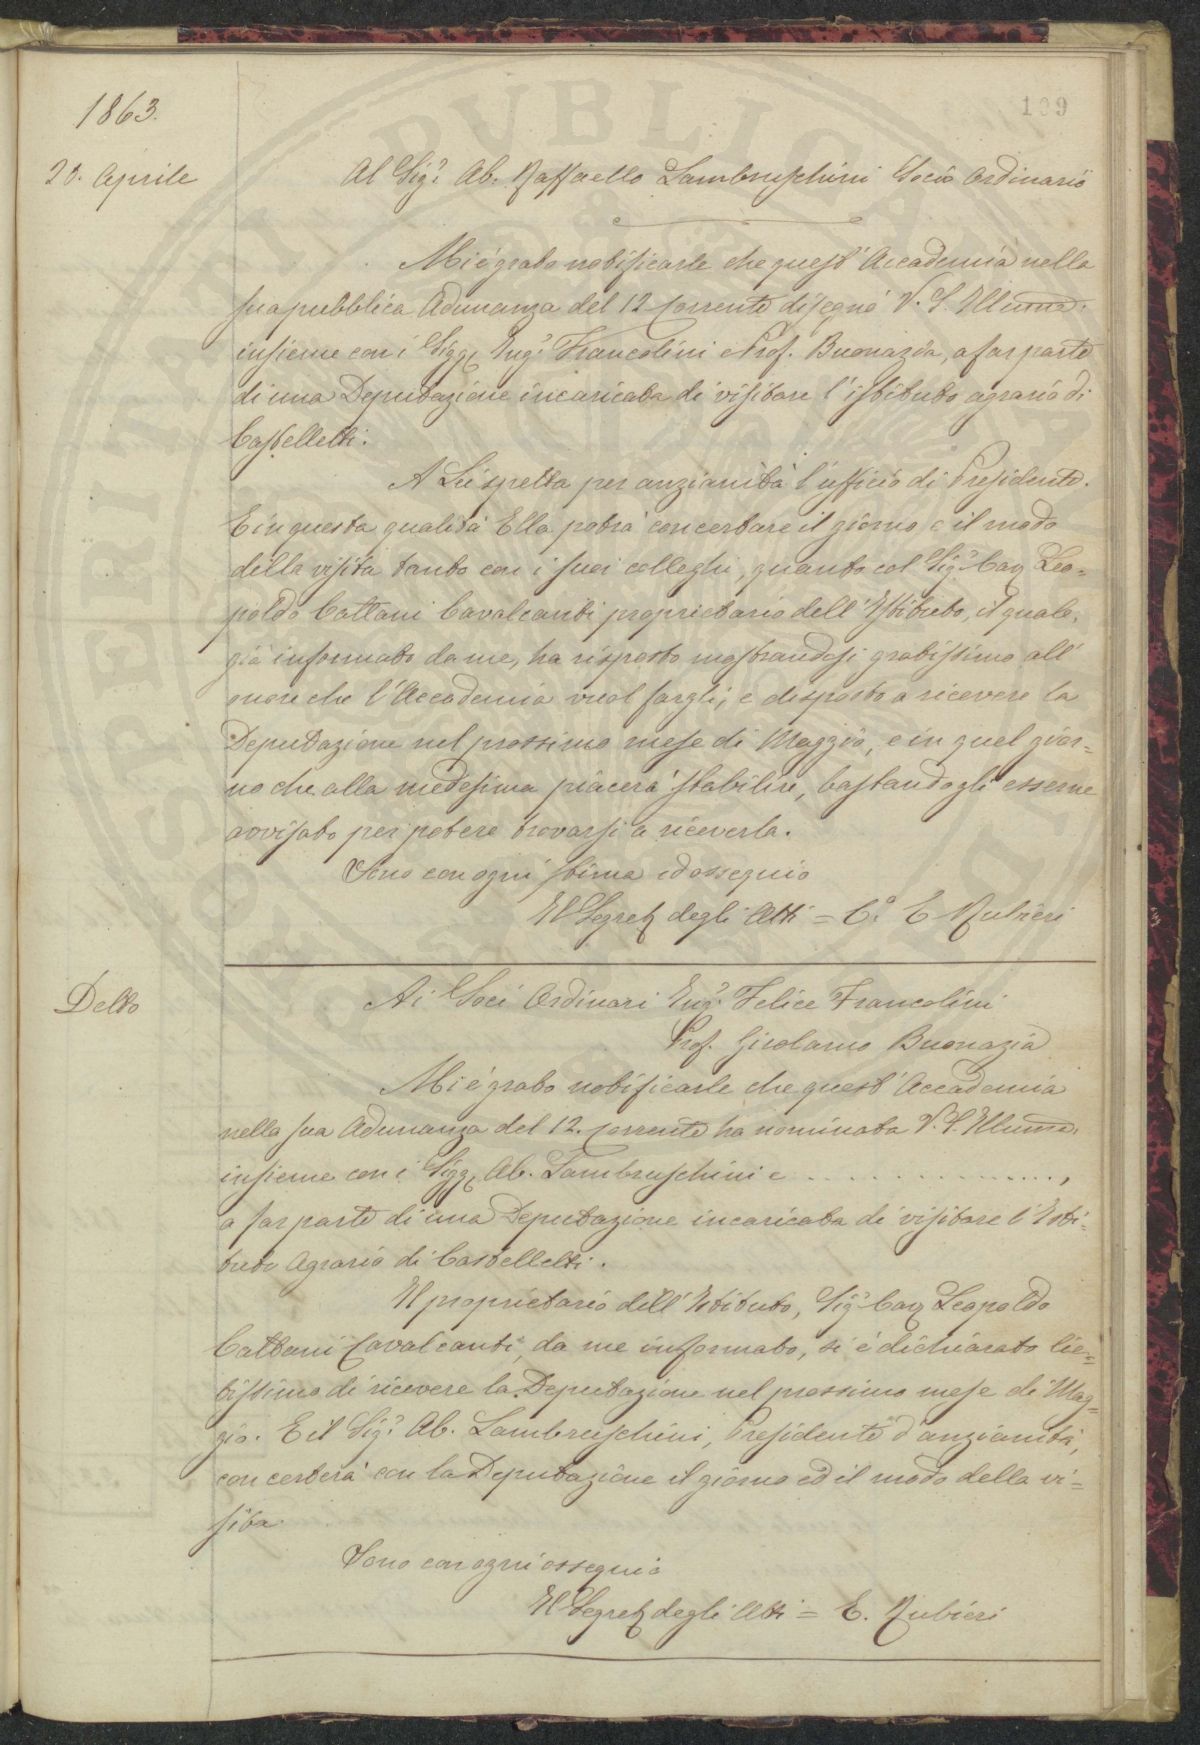 1863.
109
23. Aprile
Al Sig.r Ab. Raffaello Lambruschini Socio Ordinario
Mi è grato notificarle che quest' Accademia nella
sua pubblica Adunanza del 12 corrente disegnò V. S. Illuma.
insieme con i Sigg. Ing.r Francolini e Prof. Buonazia, a far parte
di una Deputazione incaricata di visitare l'istituto agrario di
Castelletti.
A Lei spetta per anzianità l'ufficio di Presidente.
E in questa qualità Ella potrà concertare il giorno e il modo
della visita tanto con i suoi colleghi, quanto col Sig.r Cav Leo=
poldo Cattani Cavalcanti proprietario dell'Istituto, il quale,
già informato da me, ha risposto mostrandosi gratissimo all'
onore che l'Accademia vuol fargli, e disposto a ricevere la
Deputazione nel prossimo mese di Maggio, e in quel gior=
no che alla medesima piacerà stabilire, bastandogli esserne
avvisato per potere trovarsi a riceverla.
Sono con ogni stima ed ossequio
Il Segret degli Atti = C.e E Rubieri
Detto
Ai Soci Ordinari Ing.r Felice Francolini
Prof. Girolamo Buonazia
Mi è grato notificarle che quest' Accademia
nella sua Adunanza del 12. corrente ha nominata V. S. Illuma.
insieme con i Sigg. Ab. Lambruschini e . . . . . . . . . . . . . . . ,
a far parte di una Deputazione incaricata di visitare l'Isti=
tuto Agrario di Castelletti.
Il proprietario dell'Istituto, Sig.r Cav Leopoldo
Cattani Cavalcanti, da me informato, si è dichiarato lie=
tissimo di ricevere la Deputazione nel prossimo mese di Mag=
gio. E il Sig.r Ab. Lambruschini, Presidente d'anzianità,
concerterà con la Deputazione il giorno ed il modo della vi=
sita
Sono con ogni ossequio
Il Segret degli Atti = E. Rubieri